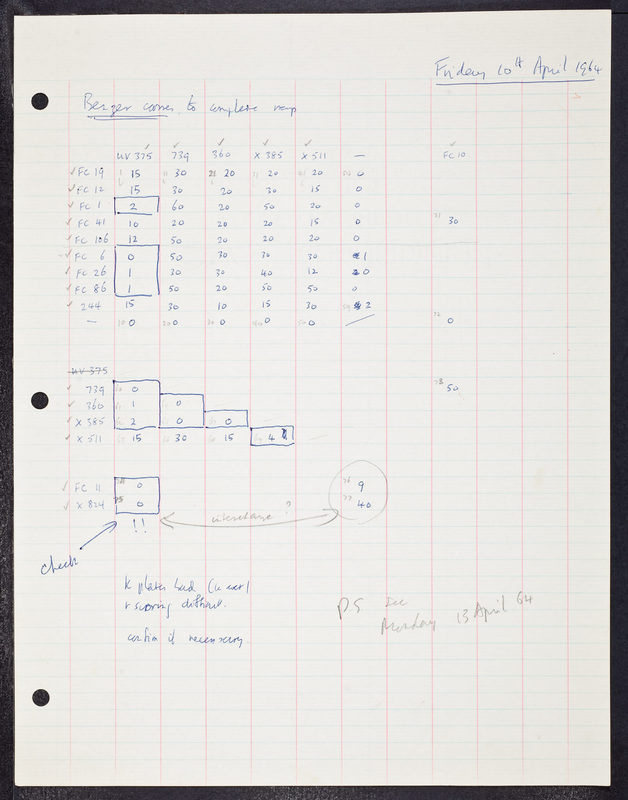 Friday 10th April 1964
Berger comes to complete map
UV 375 739 360 X 385 X 511 — FC 10
FC 19 15 30 20 20 20 0
FC 12 15 30 20 30 15 0
FC 1 2 60 20 50 20 0
FC 41 10 20 20 20 15 0 30
FC 106 12 50 20 20 20 0
FC 6 0 50 30 30 30 1
FC 26 1 30 30 40 12 0
FC 86 1 50 20 50 50 0
244 15 30 10 15 30 2
— 0 0 0 0 0 0
UV 375
739 0 50
360 1 0
X 385 2 0 0
X 511 15 30 15 4
FC 11 0 9
X 824 0 40
!! interchange ?
check
K plates bad (in wet)
& scoring difficult.
confirm if necessary
PS See
Monday 13 April 64